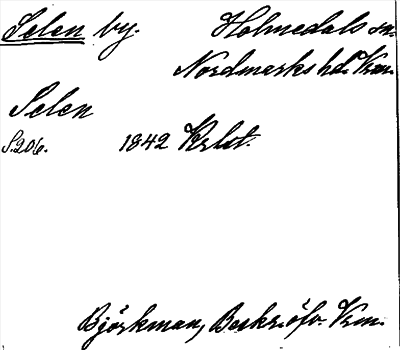 Selen by. Holmedals sn.
Nordmarks hd. Vrm.
Selen
S. 206. 1842 Krlst.
Björkman, Beskr. öfv. Vrm.